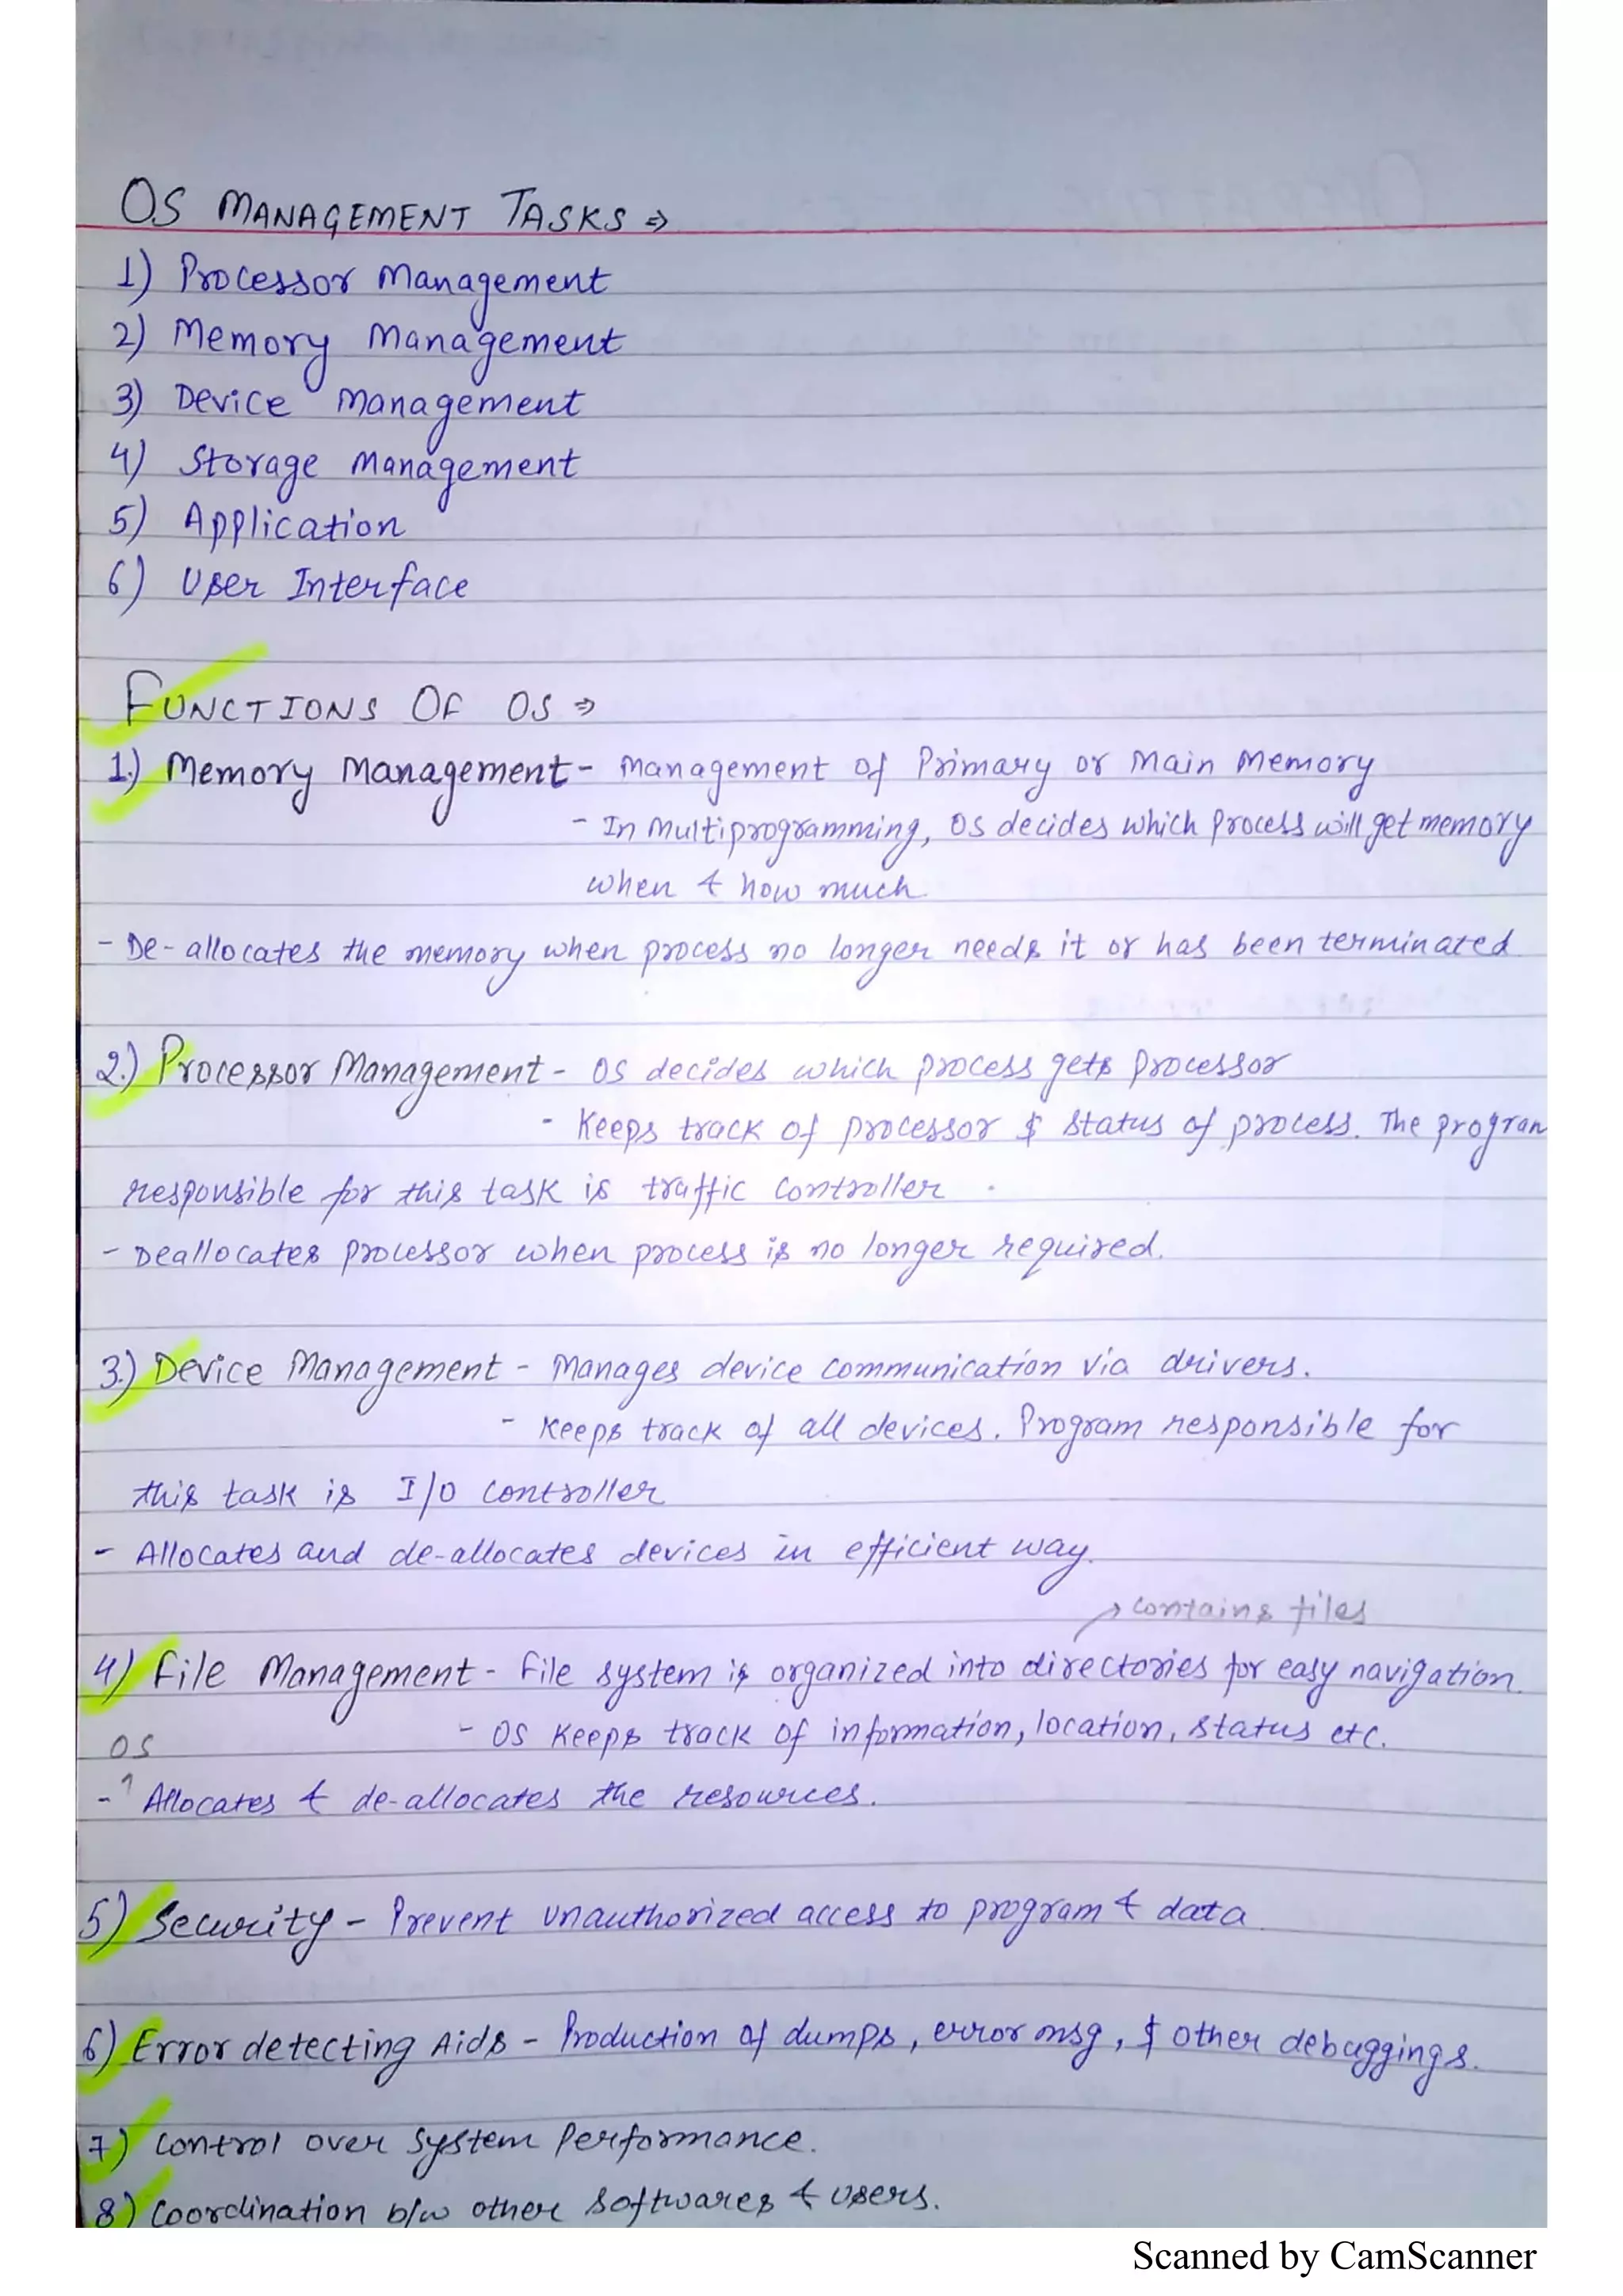 OS MANAGEMENT TASKS ⇒
1) Processor Management
2) Memory Management
3) Device Management
4) Storage Management
5) Application
6) User Interface
FUNCTIONS OF OS ⇒
1.) Memory Management - Management of Primary or Main Memory
- In Multiprogramming, OS decides which process will get memory
when & how much
- De-allocates the memory when process no longer needs it or has been terminated
2.) Processor Management - OS decides which process gets processor
- Keeps track of processor & status of process. The program
responsible for this task is traffic controller.
- Deallocates processor when process is no longer required.
3.) Device Management - Manages device communication via drivers.
- Keeps track of all devices. Program responsible for
this task is I/O controller
- Allocates and de-allocates devices in efficient way.
→ contains files
4) File Management - File system is organized into directories for easy navigation.
- OS keeps track of information, location, status etc.
OS
- ↑ Allocates & de-allocates the resources.
5) Security - Prevent unauthorized access to program & data
6) Error detecting Aids - Production of dumps, error msg, & other debuggings.
7) Control over System Performance.
8) Coordination b/w other softwares & users.
Scanned by CamScanner